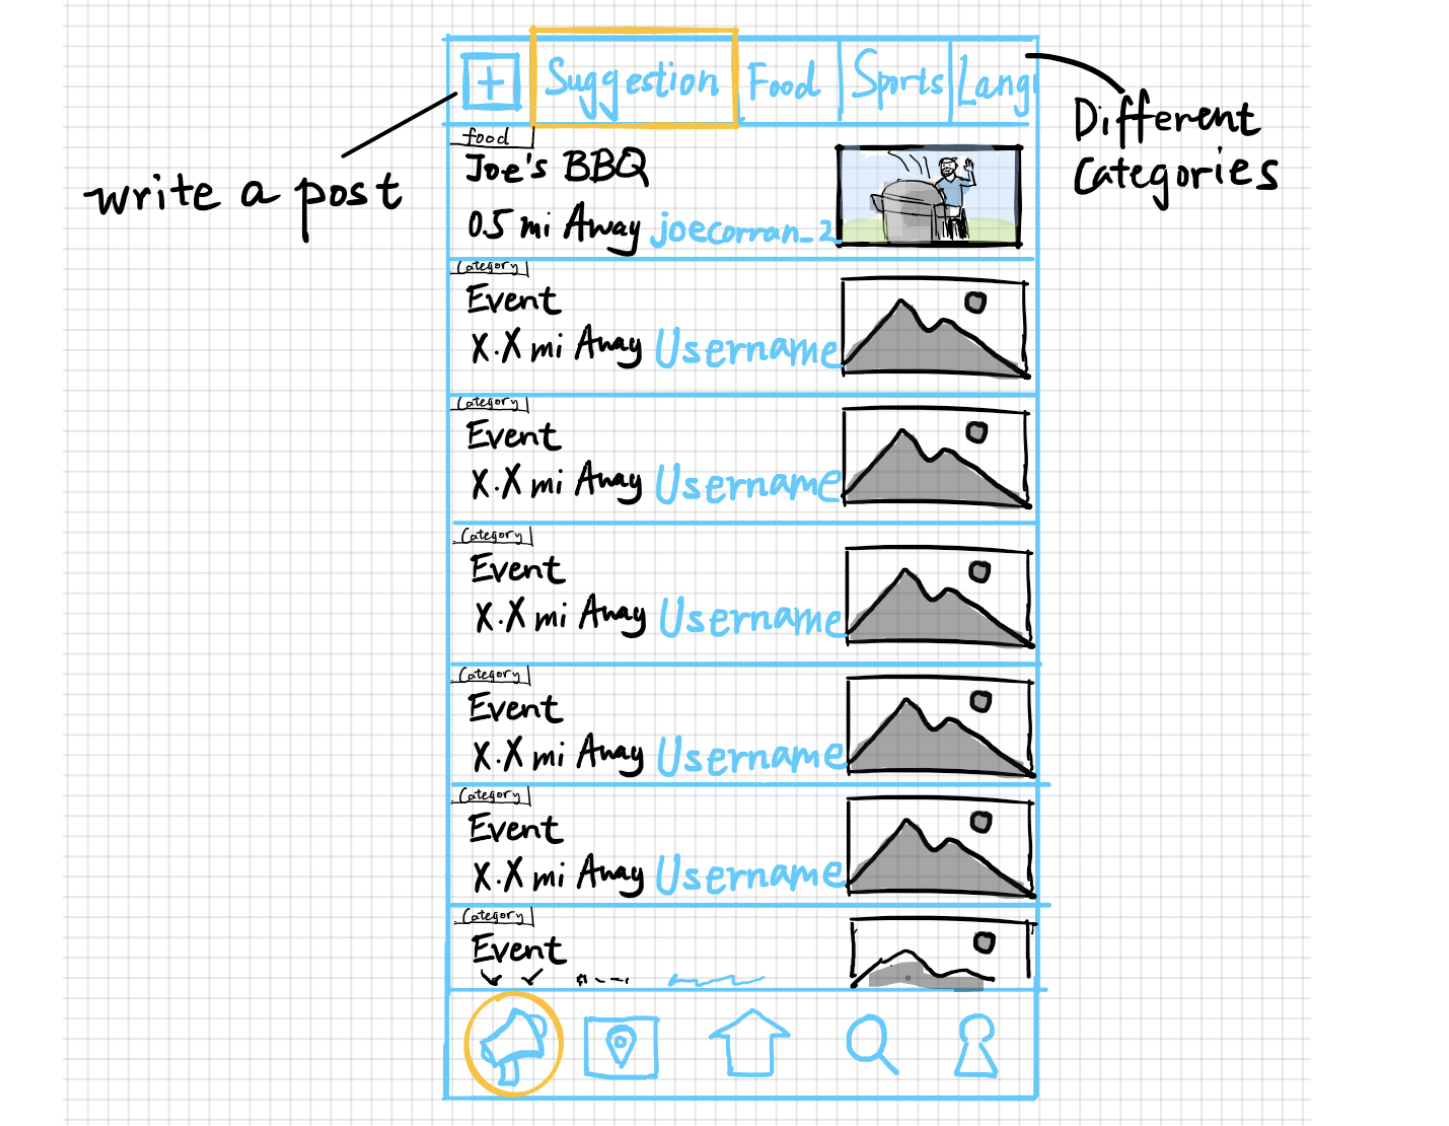 + Suggestion Food Sports Lang
write a post
Different
Categories
food
Joe's BBQ
0.5 mi Away joecorran_2
Category
Event
X.X mi Away Username
Category
Event
X.X mi Away Username
Category
Event
X.X mi Away Username
Category
Event
X.X mi Away Username
Category
Event
X.X mi Away Username
Category
Event